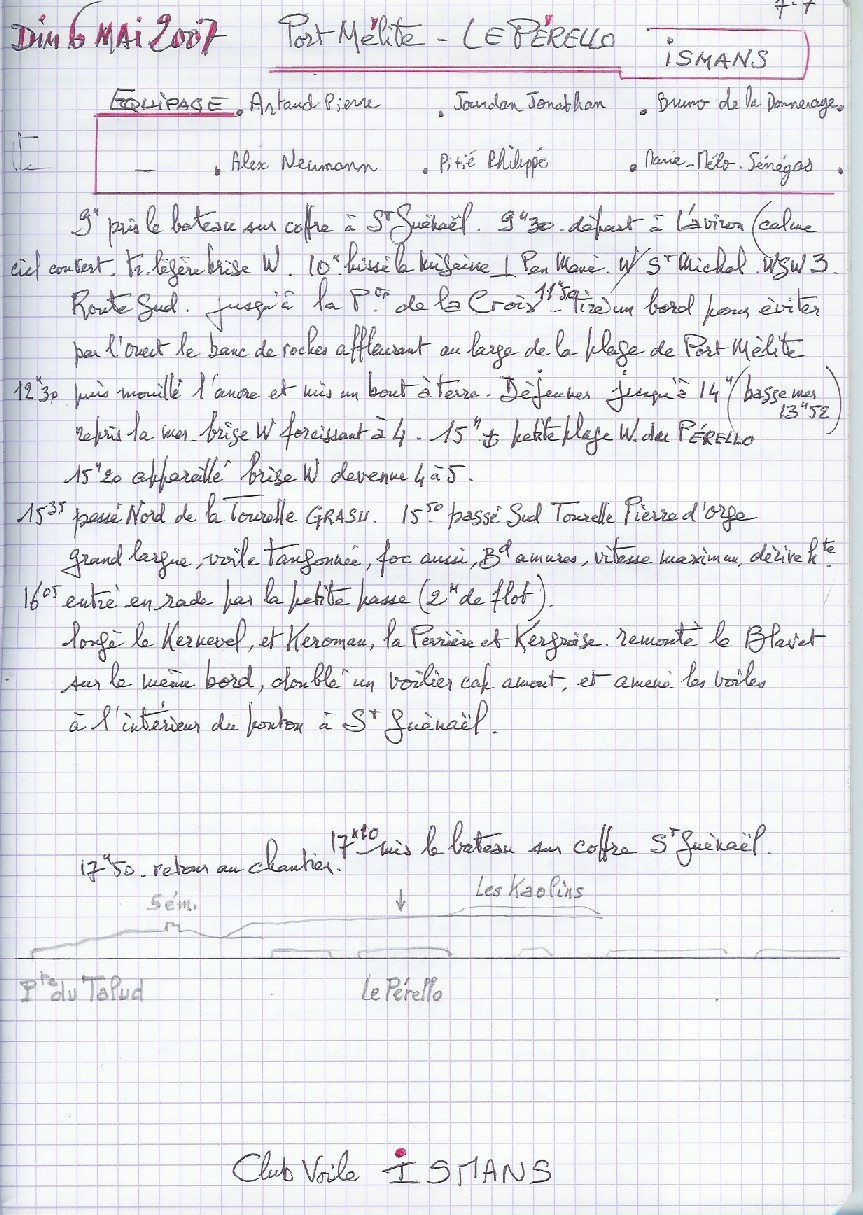 7-7
Dim 6 MAI 2007 Port Mélite - LE PÉRELLO
iSMANS
EQUIPAGE . Artaud Pierre . Jourdan Jonathan . Bruno de la Donnerage.
— . Alex Neumann . Pitié Philippe . Marie-Mélo. Sénégas .
9h pris le bateau sur coffre à St Guénaël. 9h30 départ à l'aviron (calme
ciel couvert. tr. légère brise W. 10h hissé la misaine ⊥ Pen Mané. W/ St Michel. WSW 3.
Route Sud. jusqu'à la Pte de la Croix 11h50 Tiré un bord pour éviter
par l'ouest le banc de roches affleurant au large de la plage de Port Mélite
12h30 puis mouillé l'ancre et mis un bout à terre. Déjeuner jusqu'à 14h (basse mer
13h52)
repris la mer brise W forcissant à 4. 15h petite plage W. du PÉRELLO
15h20 appareillé brise W devenue 4 à 5.
15h35 passé Nord de la Tourelle GRASU. 15h50 passé Sud Tourelle Pierre d'orge
grand largue, voile tangonnée, foc aussi, Bd amures, vitesse maximum, dérive hte.
16h05 entré en rade par la petite passe (2h de flot).
longé le Kernevel, et Keroman, la Perrière et Kergroise. remonté le Blavet
sur le même bord, doublé un voilier cap amont, et amené les voiles
à l'intérieur du ponton à St Guénaël.
17h20 mis le bateau sur coffre St Guénaël.
17h50. retour au chantier.
Sém. ↓ Les Kaolins
Pte du Talud Le Pérello
Club Voile ISMANS